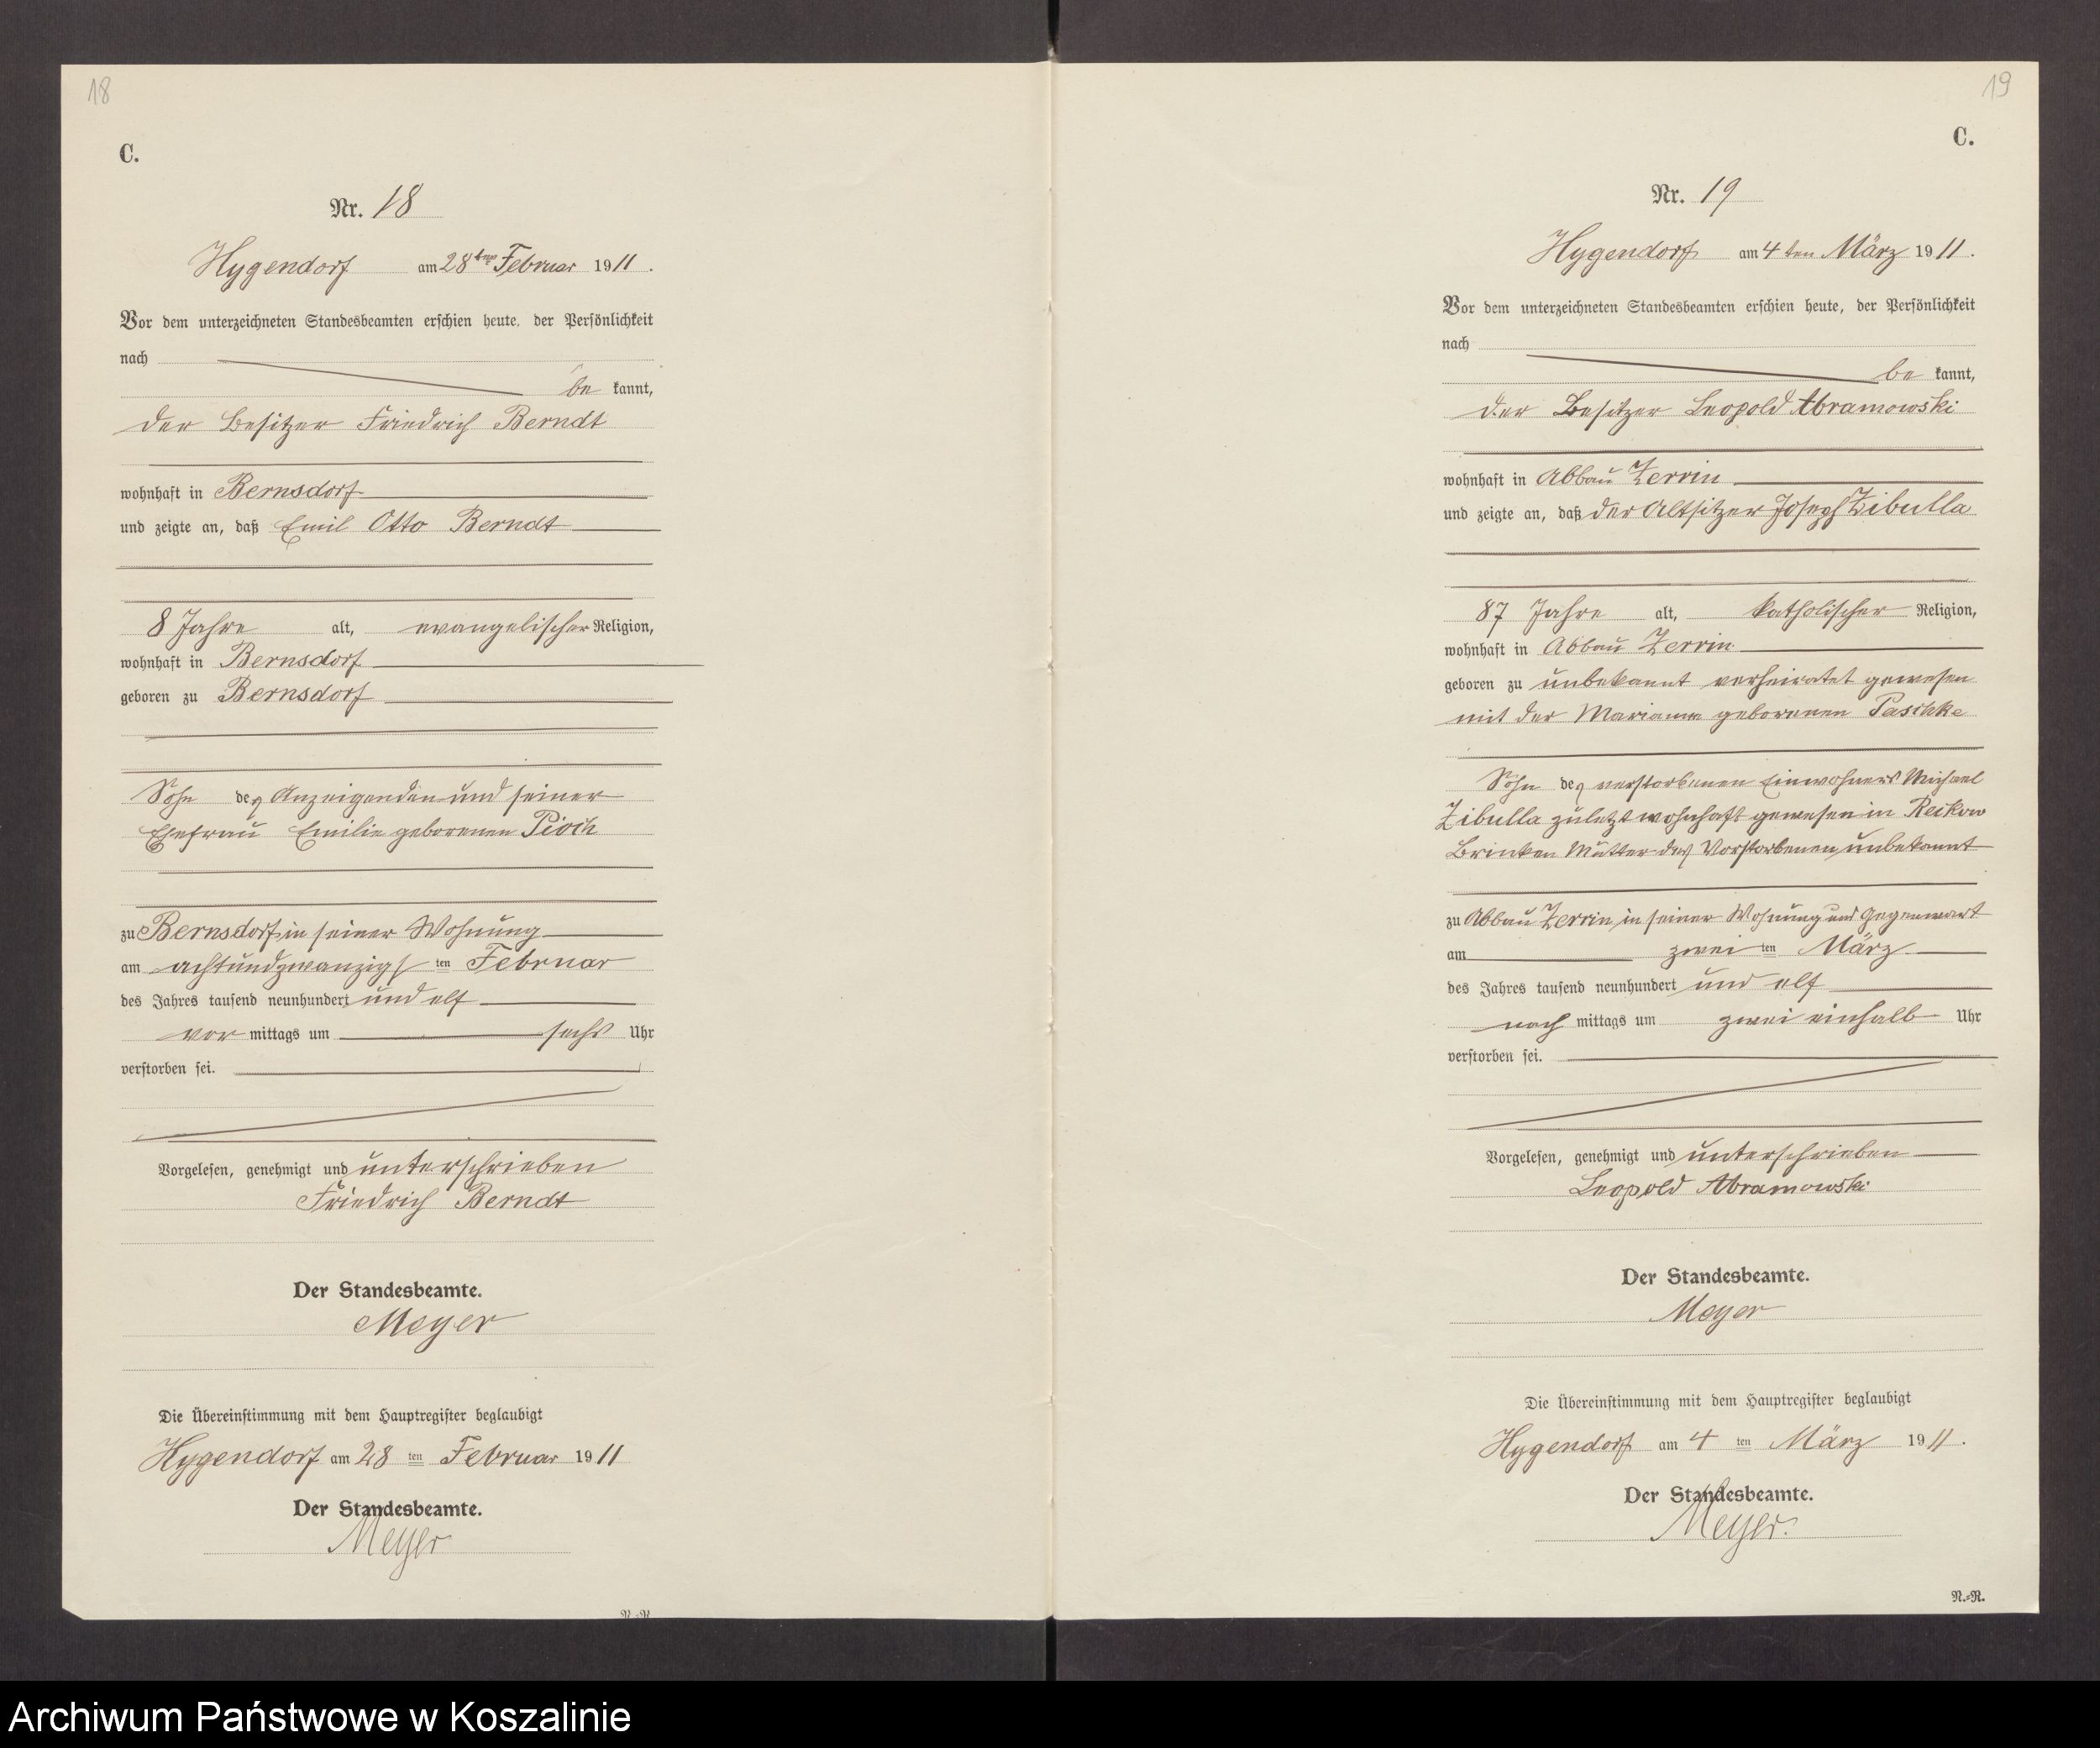 18
C.
Nr. 18
Hygendorf am 28ten Februar 1911.
Vor dem unterzeichneten Standesbeamten erschien heute, der Persönlichkeit
nach
be kannt,
der Besitzer Friedrich Berndt
wohnhaft in Bernsdorf
und zeigte an, daß Emil Otto Berndt
8 Jahre alt, evangelischer Religion,
wohnhaft in Bernsdorf
geboren zu Bernsdorf
Sohn des Anzeigenden und seiner
Ehefrau Emilie geborenen Pioch
zu Bernsdorf in seiner Wohnung
am achtundzwanzigsten Februar
des Jahres tausend neunhundert und elf
vor mittags um sechs Uhr
verstorben sei.
Vorgelesen, genehmigt und unterschrieben
Friedrich Berndt
Der Standesbeamte.
Meyer
Die Übereinstimmung mit dem Hauptregister beglaubigt
Hygendorf am 28 ten Februar 1911
Der Standesbeamte.
Meyer
19
C.
Nr. 19
Hygendorf am 4ten März 1911.
Vor dem unterzeichneten Standesbeamten erschien heute, der Persönlichkeit
nach
be kannt,
der Besitzer Leopold Abramowski
wohnhaft in Abbau Zerrin
und zeigte an, daß der Altsitzer Joseph Zibulla
87 Jahre alt, katholischer Religion,
wohnhaft in Abbau Zerrin
geboren zu unbekannt verheiratet gewesen
mit der Marianna geborenen Paschke
Sohn des verstorbenen Einwohners Michael
Zibulla zuletzt wohnhaft gewesen in Reckow
Brinken Mutter des Verstorbenen unbekannt
zu Abbau Zerrin, in seiner Wohnung und Gegenwart
am zwei ten März
des Jahres tausend neunhundert und elf
nach mittags um zwei einhalb Uhr
verstorben sei.
Vorgelesen, genehmigt und unterschrieben
Leopold Abramowski
Der Standesbeamte.
Meyer
Die Übereinstimmung mit dem Hauptregister beglaubigt
Hygendorf am 4 ten März 1911.
Der Standesbeamte.
Meyer.
N.-R.
Archiwum Państwowe w Koszalinie